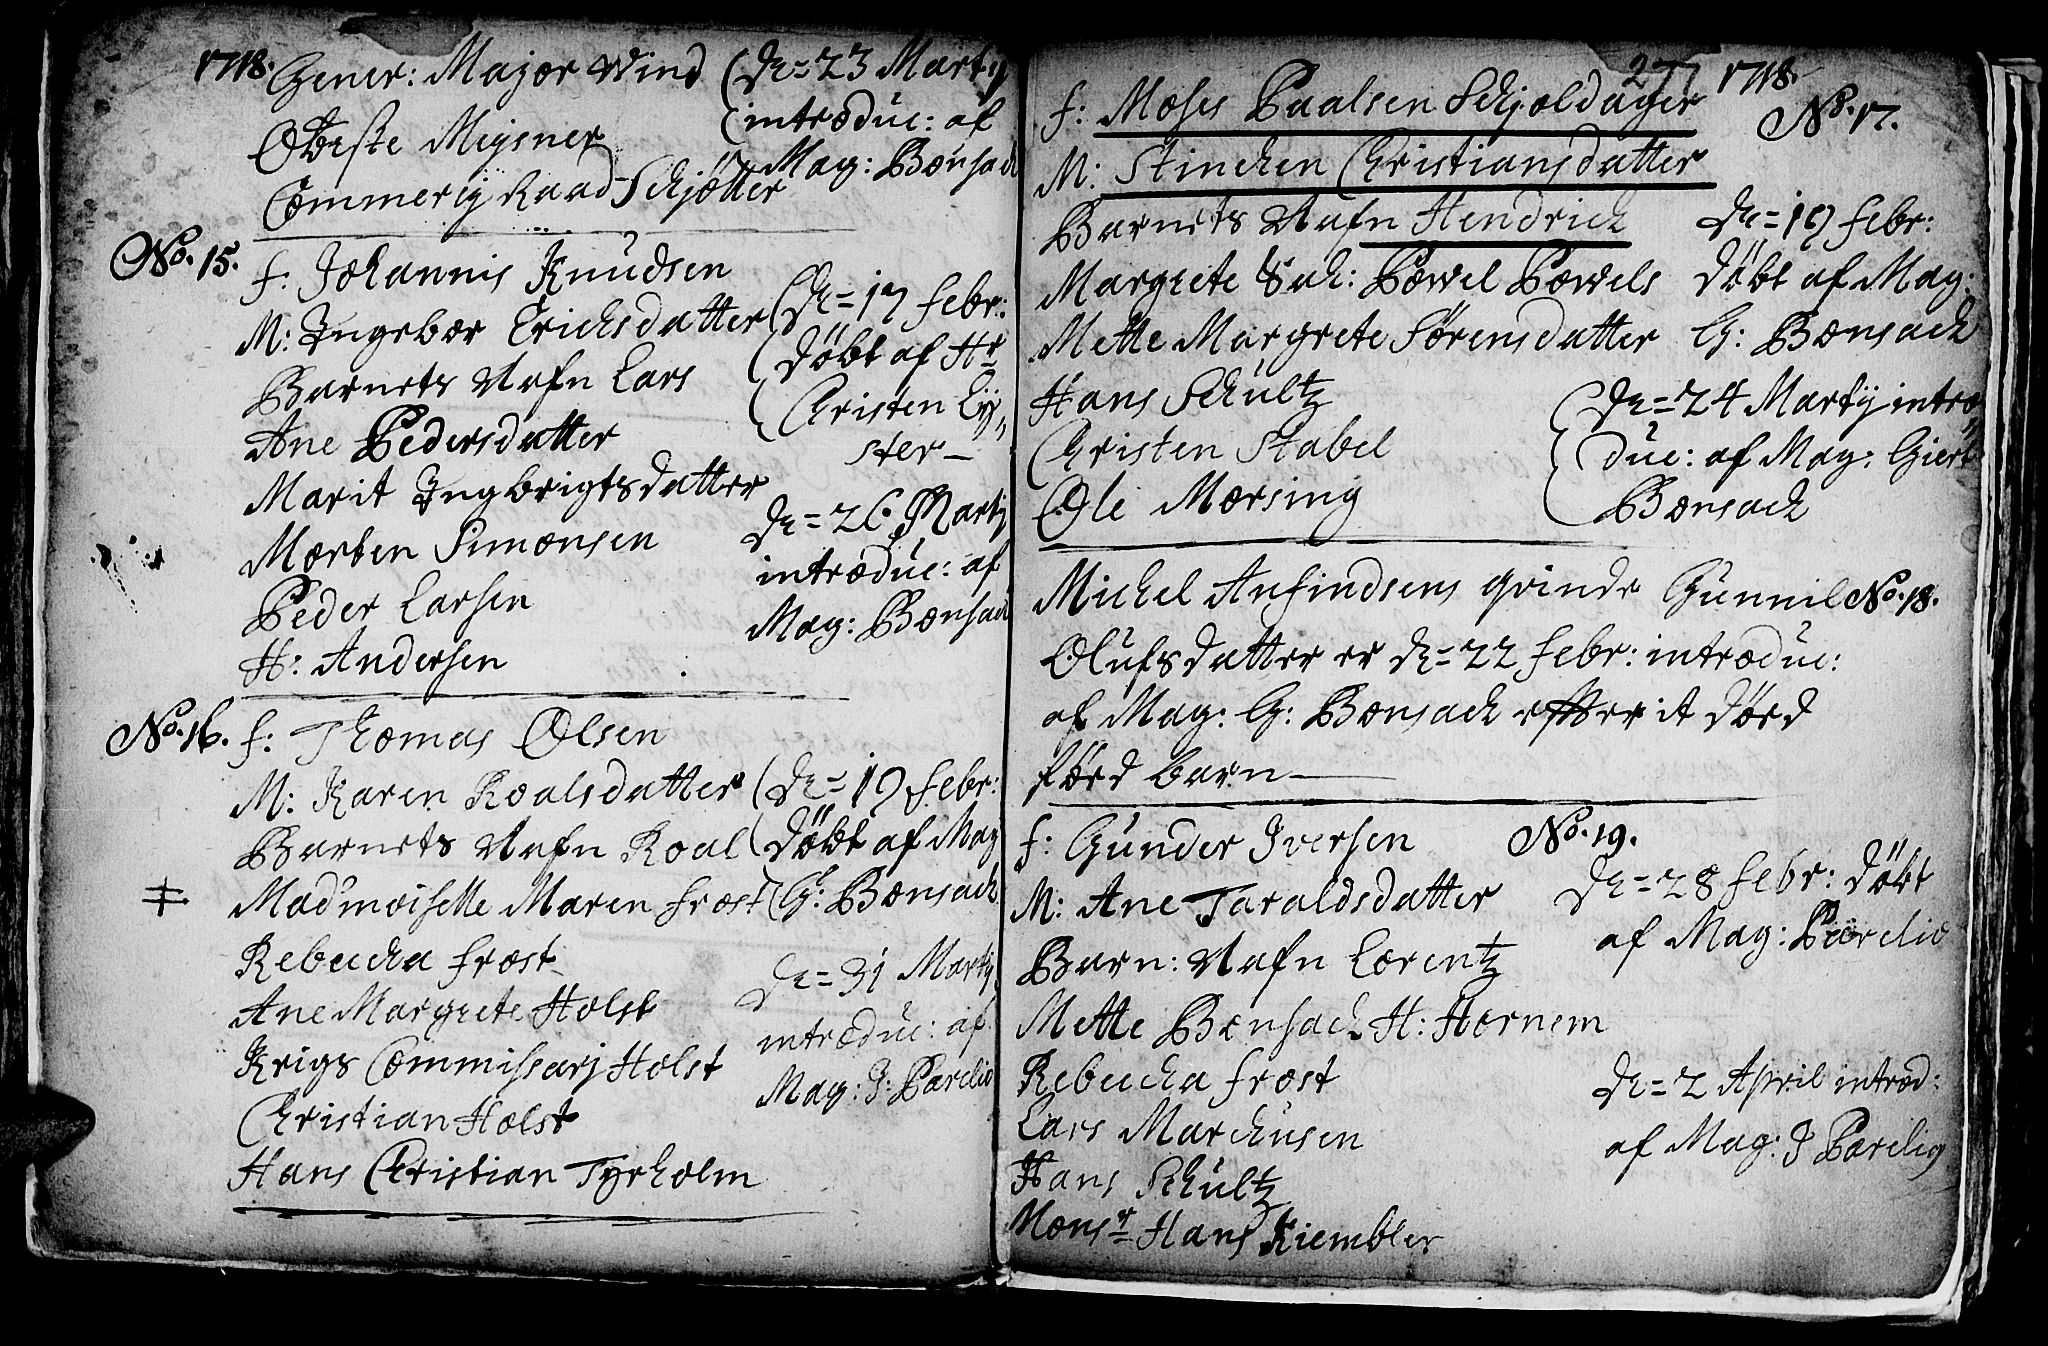 1718.
Gener: Major Wind
Obriste Meysner
Commercij Raad Schjøtter
De= 23 Martij
introduc: af
Mag: Bonsack
No. 15.
f: Johannis Knudsen
M: Ingebor Erichsdatter
Barnets Nafn Lars
Ane Pedersdatter
Marit Ingbrigtsdatter
Morten Simonsen
Peder Larsen
H: Andersen
De= 17 febr:
døbt af Hr
Christen Ly„
ster
De= 26 Martij
introduc: af
Mag: Bonsack
No. 16.
f: Thomas Olsen
M: Karen Roalsdatter
Barnets Nafn Roal
Madmoiselle Maren frost
Rebecka frost
Ane Margrete Holst
Krigs Commissarj Holst
Christian Holst
Hans Christian Tyrholm
De= 19 febr:
døbt af Mag
G: Bonsack
De= 31 Martij
introduc: af
Mag: J: Parelio
277 1718.
No. 17.
f: Moses Paalsen Schjoldager
M: Stinchen Christiansdatter
Barnets Nafn Hendrich
Margrete Sal: Powel Powels
Mette Margrete Sørensdatter
Hans Schultz
Christen Stabel
Ole Morsing
De= 19 febr:
døbt af Mag:
G: Bonsack
De= 24 Martij intro„
duc: af Mag: Giert
Bonsack
Michel Anfindsens qvinde Gunnil No. 18.
Olufsdatter er De= 22 febr: introduc:
af Mag: G: Bonsack effter it død
fød barn
No. 19.
f: Gunder Iversen
M: Ane Taraldsdatter
Barn: Nafn Lorentz
Mette Bonsack H: Hornem
Rebecka frost
Lars Marchusen
Hans Schultz
Monsr Hans Kiembler
De= 28 febr: døbt
af Mag: Parelio
De= 2 April introd:
af Mag: J Parelio